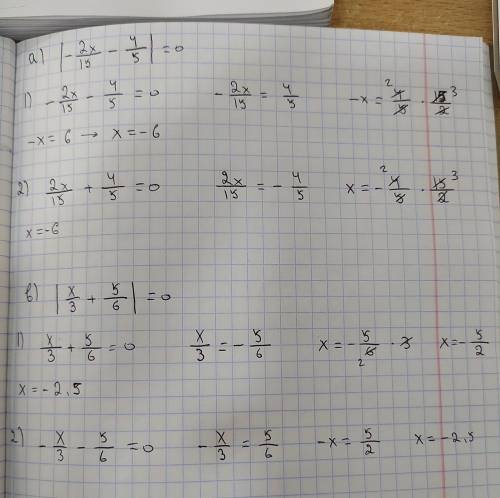 а) |-2x/15 - 4/5| = 0
1) -2x/15 - 4/5 = 0 -2x/15 = 4/5 -x = 4/5 · 15/2 2 3
-x = 6 → x = -6
2) 2x/15 + 4/5 = 0 2x/15 = -4/5 x = -4/5 · 15/2 2 3
x = -6
в) |x/3 + 5/6| = 0
1) x/3 + 5/6 = 0 x/3 = -5/6 x = -5/6 · 3 2 x = -5/2
x = -2,5
2) -x/3 - 5/6 = 0 -x/3 = 5/6 -x = 5/2 x = -2,5